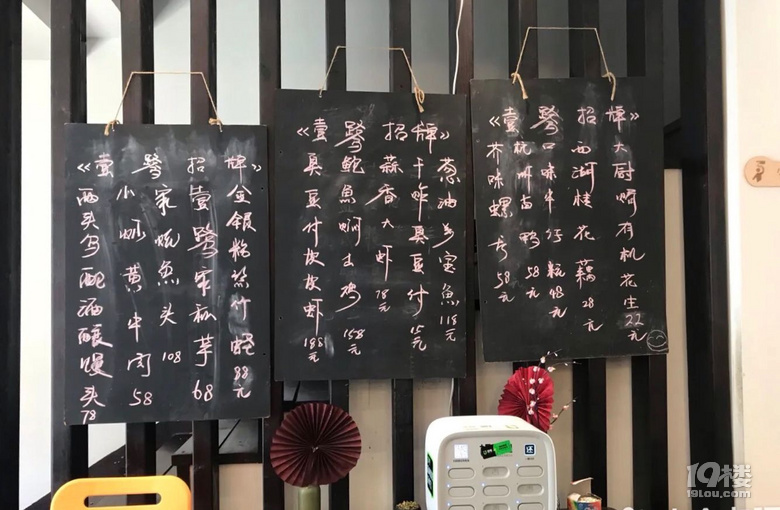 《壹鹭招牌》
两头乌配酒酿馒头 78
小炒黄牛肉 58
家炖魚头 108
壹鹭家 芋 68
金银粉丝竹蛏 88元
《壹鹭招牌》
臭豆付 虾 188元
鲍魚焖土鸡 158元
蒜香大虾 78元
干炸臭豆付 15元
葱油多宝魚 118元
《壹鹭招牌》
芥味螺片 58元
杭州卤鸭 58元
口味牛仔粒 48元
西湖桂花藕 28元
大厨 有机花生 22元
19楼
19lou.com